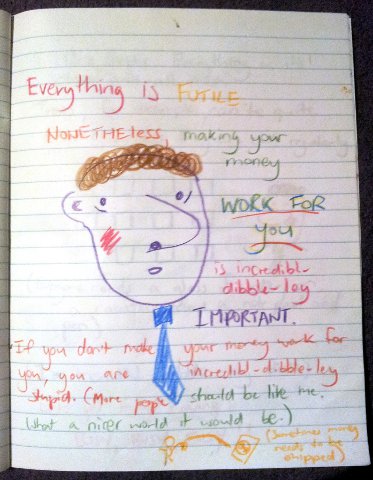 Everything is FUTILE
NONETHELESS, making your
money
WORK FOR
you
is incredibl-
dibble-ley
IMPORTANT.
If you don't make your money work for
you, you are incredibl-dibble-ley
stupid. (More people should be like me.
What a nicer world it would be.)
(Sometimes money
needs to be
whipped)